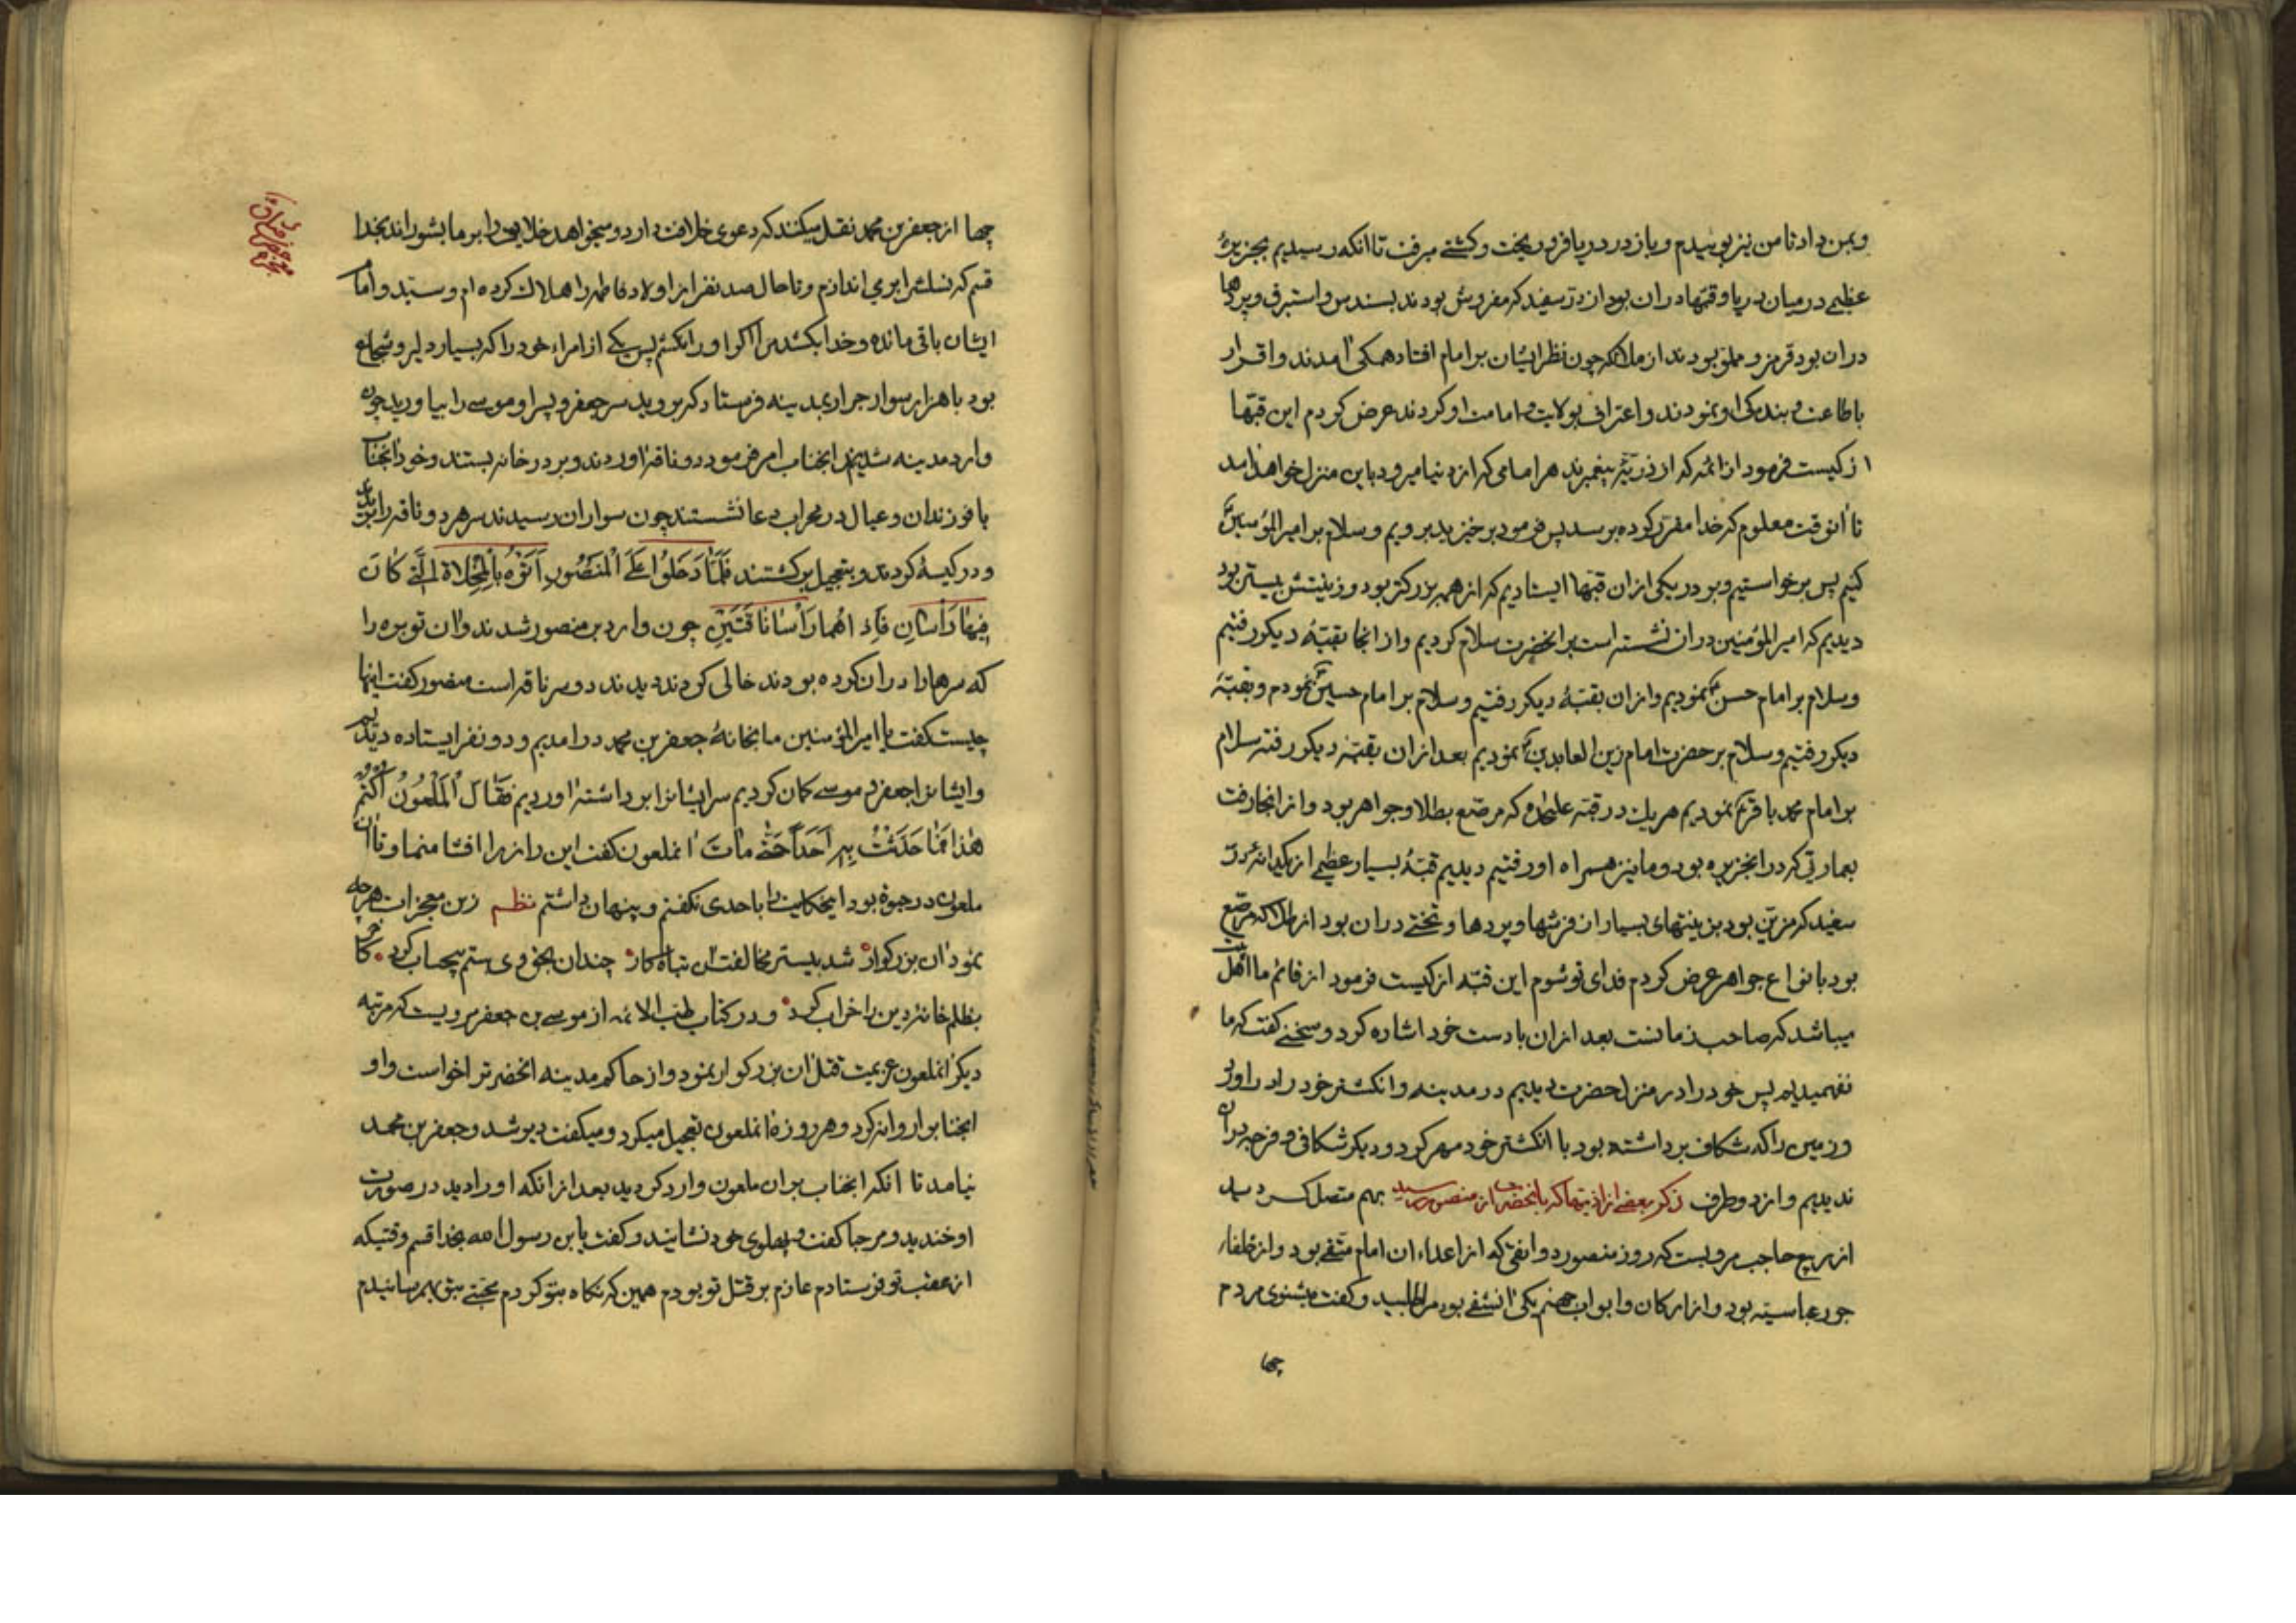 وبمن داد تا من نیز بوییدم و باز در دریا فرو ریخت و کشتی میرفت تا انکه رسیدیم بجزیرهٔ
عظیمی در میان دریا و قبّها در ان بود از درّ سفید که مفروش بودند بسندس و استبرق و پردها
در ان بود قرمز و مملو بودند از ملائکه چون نظر ایشان بر امام افتاد همکی امدند و اقرار
باطاعت و بندکی او نمودند و اعتراف بولایت و امامت او کردند عرض کردم این قبّها
از کیست فرمود از ائمه که از ذریّه پیغمبرند هر امامی که از دنیا میرود باین منزل خواهد امد
تا انوقت معلوم که خدا مقرّر کرده برسد پس فرمود برخیزید برویم و سلام بر امیر المؤمنین
کنیم پس برخواستیم و بر در یکی از ان قبّها ایستادیم که از همه بزرکتر بود و زینتش بیشتر بود
دیدیم که امیر المؤمنین در ان نشسته است بر انحضرت سلام کردیم و از انجا بقبّهٔ دیکر رفتیم
و سلام بر امام حسن نمودیم و از ان بقبّهٔ دیکر رفتیم و سلام بر امام حسین نمودم و بقبّهٔ
دیکر رفتیم و سلام بر حضرت امام زین العابدین نمودیم بعد از ان بقبّهٔ دیکر رفته سلام
بر امام محمد باقر نمودیم هر یک در قبّه علیحده که مرصّع بطلا و جواهر بود و از انجا رفت
بعمارتی که در انجزیره بود و ما نیز همراه او رفتیم دیدیم قبّهٔ بسیار عظیمی از یکدانه درّ
سفید که مزیّن بود بزینتهای بسیار از فرشها و پردها و تختی در ان بود از طلا که مرصّع
بود بانواع جواهر عرض کردم فدای تو شوم این قبّه از کیست فرمود از قائم ما اهل بیت
میباشد که صاحب زمانست بعد از ان با دست خود اشاره کرد و سخنی کفت که ما
نفهمیدیم پس خود را در منزل حضرت دیدیم در مدینه و انکشتر خود را در اورد
و زمین را که شکاف برداشته بود با انکشتر خود مهر کرد و دیکر شکافی و فرجه در ان
ندیدیم و از دو طرف ذکر بعضی از اذیتها که بانحضرت از منصور رسید بهم متصل کردید
از ربیع حاجب مرویست که روز منصور دوانقی که از اعداء ان امام متّقی بود و از خلفاء
جور عباسیه بود و از ارکان و ابواب جهنم یکی ان شقی بود مرا طلبید و کفت میشنوی مردم
چها
چها از جعفر بن محمد نقل میکنند که دعوی خلافت دارد و میخواهد خلایق را بر ما بشوراند بخدا
قسم که نسلش را بر می اندازم و تا حال صد نفر از اولاد فاطمه را هلاک کرده ام و سیّد و امام
ایشان باقی مانده و خدا بکشد مرا اکر او را نکشم پس یکی از امراء خود را که بسیار دلیر و شجاع
بود با هزار سوار جرار بمدینه فرستاد که بروید سر جعفر و پسر او موسی را بیاورید چون
وارد مدینه شدند انجناب امر فرمود دو ناقه اوردند و بر در خانه بستند و خود انجناب
با فرزندان و عیال در محراب دعا نشستند چون سواران رسیدند سر هر دو ناقه را بریده
و در کیسهٔ کردند و بتعجیل برکشتند فَلَمّٰا دَخَلُوا عَلَی الْمَنْصُورِ اَتَوْهُ بِالْمِخْلاةِ الَّتی کانَ
فیها رَأْسانِ فَاِذٰا هُما رَأْسا ناقَتَیْنِ چون وارد بر منصور شدند و ان توبره را
که سرها را در ان کرده بودند خالی کردند دیدند دو سر ناقه است منصور کفت اینها
چیست کفت یا امیر المؤمنین ما بخانهٔ جعفر بن محمد در امدیم و دو نفر ایستاده دیدیم
و ایشان را جعفر و موسی کمان کردیم سر ایشان را برداشته اوردیم فَقٰالَ الْمَلْعُونُ اُکْتُمْ
هٰذا فَمٰا حَدَّثْتُ بِهِ اَحَداً حَتّٰی مٰاتَ انملعون کفت این راز مرا افشا منما و تا ان
ملعون در حیوة بود اینحکایت را باحدی نکفتم و پنهان داشتم نظم زین معجزات هر چه
نمود ان بزرکوار شد بیشتر مخالفت ان تباه کار چندان بحق وی ستم بیحساب کرد کاخر
بظلم خانهٔ دین را خراب کرد و در کتاب طب الائمه از موسی بن جعفر مرویست که مرتبه
دیکر انملعون عزیمت قتل ان بزرکوار نمود و از حاکم مدینه انحضرت را خواست و او
انجناب را روانه کرد و هر روزه انملعون تعجیل میکرد و میکفت دیر شد و جعفر بن محمد
نیامد تا انکه انجناب بر ان ملعون وارد کردید بعد از انکه او را دید در صورت
او خندید و مرحبا کفت و پهلوی خود نشانید و کفت یا بن رسول الله بخدا قسم وقتیکه
از عقب تو فرستادم عازم بر قتل تو بودم همین که نکاه بتو کردم محبّتی بتو بهم رسانیدم